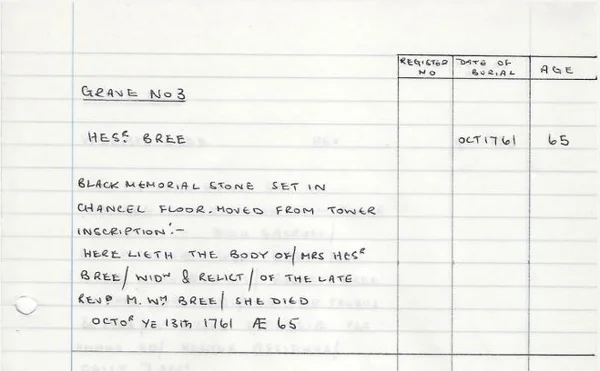 REGISTER NO DATE OF BURIAL AGE
GRAVE NO 3
HESR. BREE OCT 1761 65
BLACK MEMORIAL STONE SET IN
CHANCEL FLOOR. MOVED FROM TOWER
INSCRIPTION:-
HERE LIETH THE BODY OF/ MRS HESR
BREE/ WIDW & RELICT/ OF THE LATE
REVD M. WM BREE/ SHE DIED
OCTOR YE 13TH 1761 Æ 65